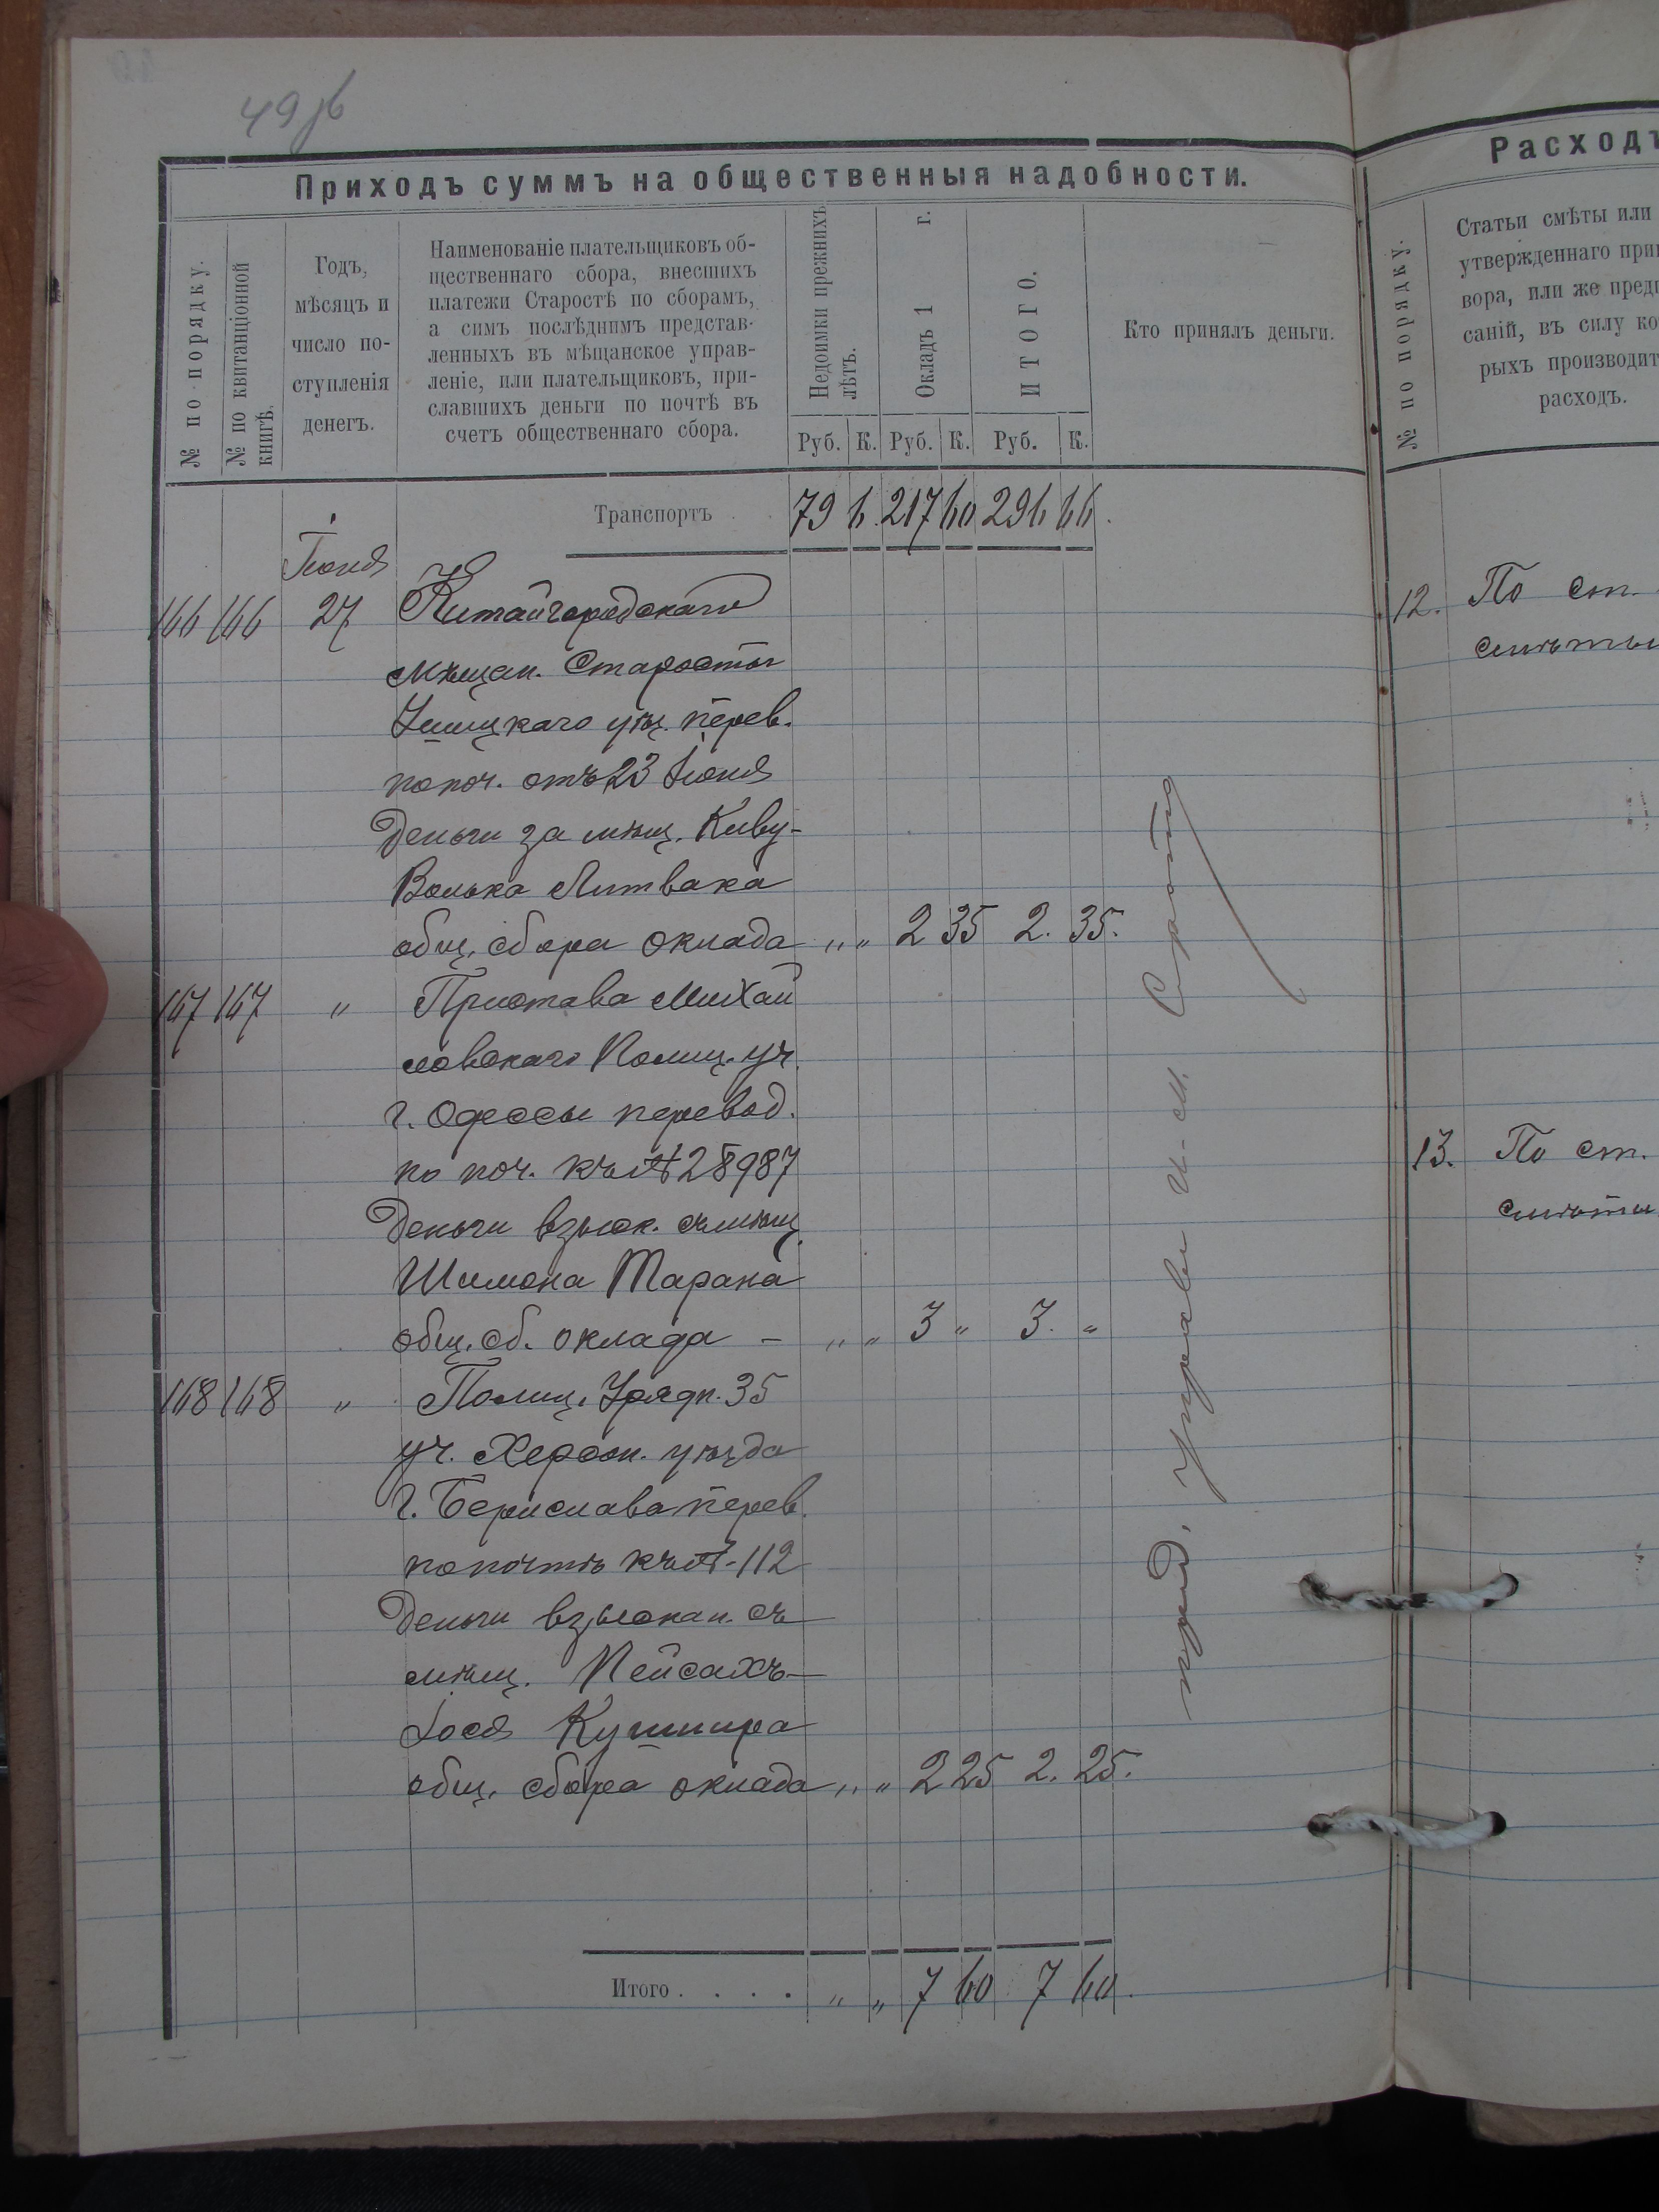 49 об
Приходъ суммъ на общественныя надобности.
№ по порядку.
№ по квитанціонной
книгѣ.
Годъ,
мѣсяцъ и
число по-
ступленія
денегъ.
Наименованіе плательщиковъ об-
щественнаго сбора, внесшихъ
платежи Старостѣ по сборамъ,
а симъ послѣднимъ представ-
ленныхъ въ мѣщанское управ-
леніе, или плательщиковъ, при-
славшихъ деньги по почтѣ въ
счетъ общественнаго сбора.
Недоимки прежнихъ
лѣтъ.
Окладъ 1 г.
ИТОГО.
Руб. К. Руб. К. Руб. К.
Кто принялъ деньги.
Транспортъ 79 6. 217 60 296 66.
Іюня
166 166 27 Китайгородскаго
мѣщан. Старосты
Ушицкаго уѣз. перев.
по поч. отъ 23 Іюня
Деньги за мѣщ. Киву-
Волька Литвака
общ. сбора оклада „ „ 2 35 2. 35.
167 167 „ Пристава Михай
ловскаго Полиц. уч.
г. Одессы перевод.
по поч. къ № 28987
Деньги взыск. съ мѣщ.
Шимона Тарана
общ. сб. оклада - „ „ 3 „ 3. „
168 168 „ Полиц. Урядн. 35
уч. Херсон. уѣзда
г. Берислава перев.
по почтѣ къ № 112
Деньги взыскан. съ
мѣщ. Пейсахъ-
Іося Кушнира
общ. сбора оклада „ „ 2 25 2. 25.
Итого . . . . „ „ 7 60 7 60.
Управы
Расходъ
№ по порядку.
Статьи смѣты или
утвержденнаго при
вора, или же пред
саній, въ силу ко
рыхъ производит
расходъ.
12. По ст.
смѣты
13. По ст.
смѣты